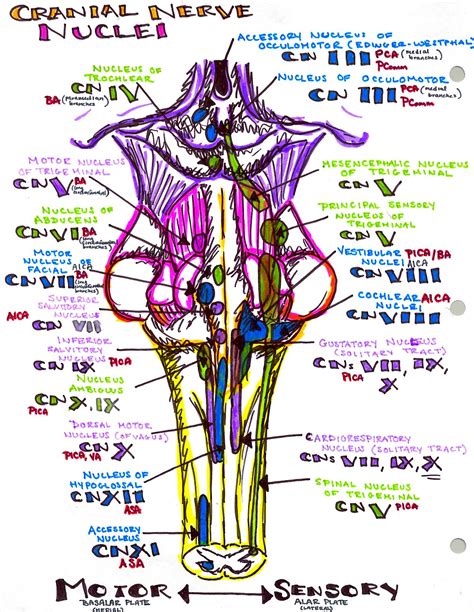 CRANIAL NERVE
NUCLEI
ACCESSORY NUCLEUS OF
OCCULOMOTOR (EDINGER-WESTPHAL)
CN III PCA (medial
branches)
PComm
NUCLEUS OF OCCULOMOTOR
CN III PCA (medial
branches)
PComm
NUCLEUS OF
TROCHLEAR
CN IV
BA (Paramedian
branches)
MOTOR NUCLEUS
OF TRIGEMINAL
CN V BA
(long
circumferential
branches)
NUCLEUS OF
ABDUCENS
CN VI BA
(long
circumferential
branches)
MOTOR
NUCLEUS OF
FACIAL AICA
CN VII BA
(long
circumferential
branches)
SUPERIOR
SALIVATORY
NUCLEUS
AICA
CN VII
INFERIOR
SALIVATORY
NUCLEUS PICA
CN IX
NUCLEUS
AMBIGUUS
CN X, IX
PICA
DORSAL MOTOR
NUCLEUS (OF VAGUS)
CN X
PICA, VA
NUCLEUS OF
HYPOGLOSSAL
CN XII
ASA
ACCESSORY
NUCLEUS
CN XI
ASA
MESENCEPHALIC NUCLEUS
OF TRIGEMINAL
CN V
PRINCIPAL SENSORY
NUCLEUS OF
TRIGEMINAL
CN V
VESTIBULAR PICA/BA
NUCLEI AICA
CN VIII
COCHLEAR AICA
NUCLEI
CN VIII
GUSTATORY NUCLEUS
(SOLITARY TRACT)
CNs VII, IX,
PICA X
CARDIORESPIRATORY
NUCLEUS (SOLITARY TRACT)
CNs VII, IX, X
PICA
SPINAL NUCLEUS
OF TRIGEMINAL
CN V PICA
MOTOR ↔ SENSORY
BASALAR PLATE
(MEDIAL)
ALAR PLATE
(LATERAL)